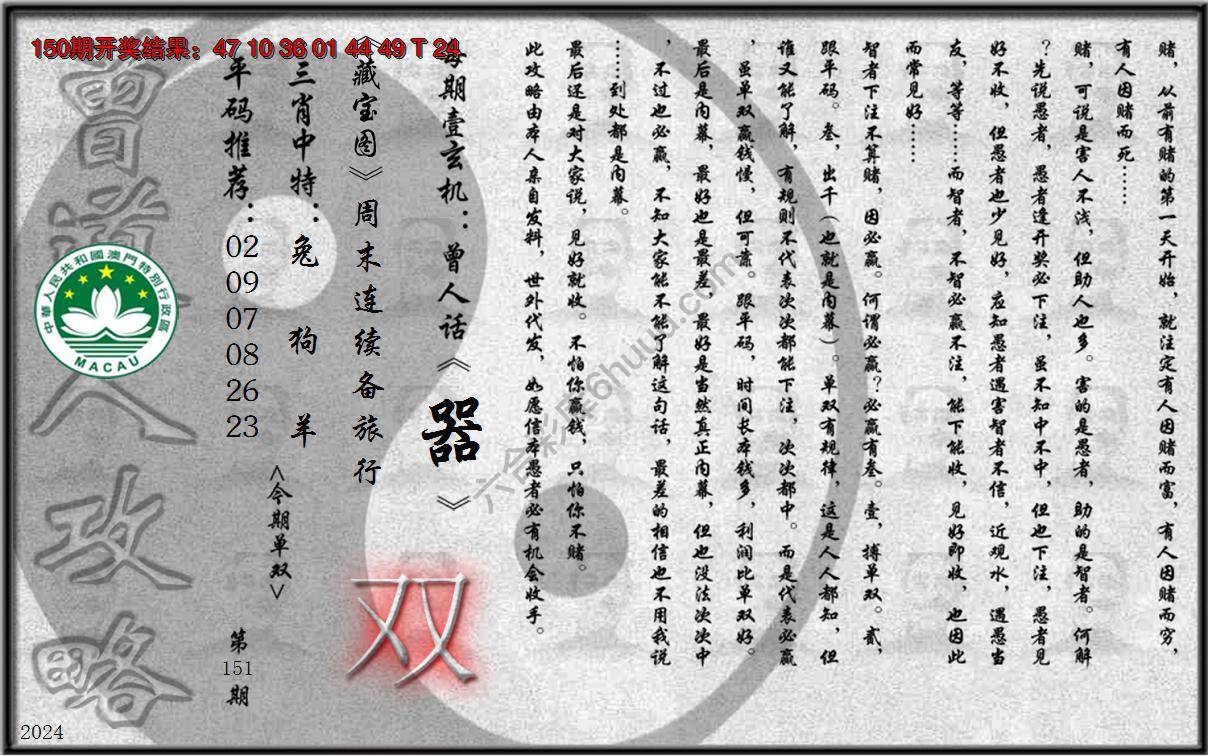 150期开奖结果：47 10 36 01 44 49 T 24
赌，从前有赌的第一天开始，就注定有人因赌而富，有人因赌而穷，
有人因赌而死……
赌，可说是害人不浅，但助人也多。害的是愚者，助的是智者。何解
？先说愚者，愚者逢开奖必下注，虽不知中不中，但也下注，愚者见
好不收，但愚者也少见好，应知愚者遇害智者不信，近观水，遇愚当
友，等等……而智者，不智必赢不注，能下能收，见好即收，也因此
而常见好……
智者下注不算赌，因必赢。何谓必赢？必赢有叁。壹，搏单双。贰，
跟平码。叁，出千（也就是内幕）。单双有规律，这是人人都知，但
谁又能了解，有规则不代表次次都能下注，次次都中。而是代表必赢
，虽单双赢钱慢，但可靠。跟平码，时间长本钱多，利润比单双好。
最后是内幕，最好也是最差，最好是当然真正内幕，但也没法次次中
，不过也必赢，不知大家能不能了解这句话，最差的相信也不用我说
……到处都是内幕。
最后还是对大家说，见好就收。不怕你赢钱，只怕你不赌。
此攻略由本人亲自发料，世外代发，如愿信本愚者必有机会收手。
每期壹玄机：曾人话《器》
《藏宝图》周末连续备旅行
双
三肖中特：兔 狗 羊
<今期单双>
平码推荐：
02
09
07
08
26
23
第
151
期
曾道人攻略
中華人民共和國澳門特別行政區
MACAU
六合彩库6huuu.com
2024